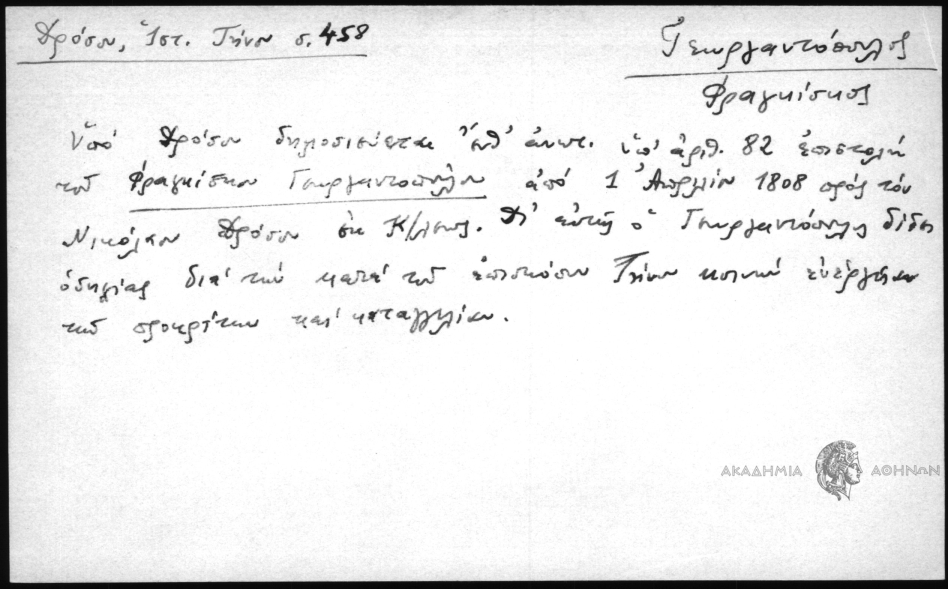 Δρόσου, Ἱστ. Τήνου σ. 458
Γεωργαντόπουλος
Φραγκίσκος
Ὑπό Δρόσου δημοσιεύεται ἔνθ' ἀνωτ. ὑπ' ἀριθ. 82 ἐπιστολή
τοῦ Φραγκίσκου Γεωργαντοπούλου ἀπό 1 Ἀπριλίου 1808 πρός τόν
Νικόλαον Δρόσον ἐκ Κ/λεως. Δι' αὐτῆς ὁ Γεωργαντόπουλος δίδει
ὁδηγίας διά τήν κατά τοῦ ἐπισκόπου Τήνου κοινήν ἐνέργειαν
τῶν προκρίτων καί καταγγελίαν.
ΑΚΑΔΗΜΙΑ ΑΘΗΝΩΝ